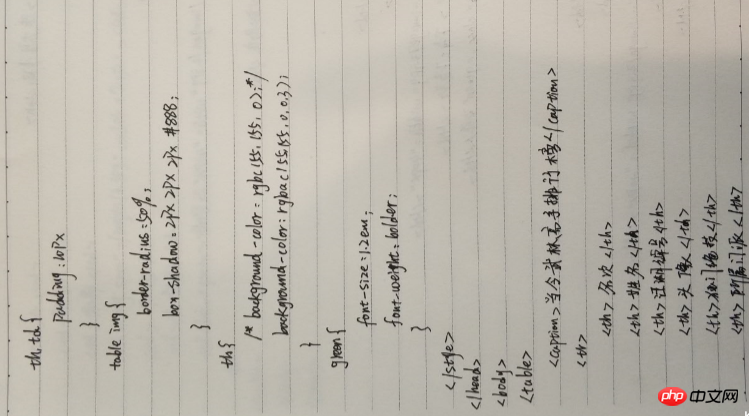 th td{
padding:10px
}
table img{
border-radius=50%;
box-shadow=2px 2px 2px #888;
}
th{
/* background-color = rgb(155, 155, 0);*/
background-color: rgba(155,155,0,0.3);
}
green{
font-size=1.2em;
font-weight=bolder;
}
</style>
</head>
<body>
<table>
<caption>当今武林高手排行榜</caption>
<th>
<th>名次</th>
<th>姓名</th>
<th>江湖绰号</th>
<th>头像</th>
<th>独门绝技</th>
<th>所属门派</th>
php中文网